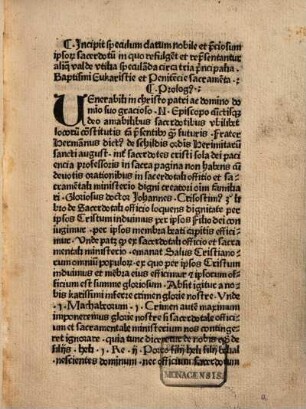 ¶ Incipit speculum clarum nobile et p̄ciosum
ipsorͫ sacerdotū in quo refulgēt et repn̄sentantur
aliq̄ valde vtilia speculāda circa tria prīncipalia
Baptismi Eukaristie et Penitēcie sacramēta :
¶ Prolog⁹
UEnerabili in christo patri ac domino do
mino suo gracioso . N . Episcopo
deo amabilibus sacerdotibus vbilibet
locorū cōstitutis tā pn̄tibo q̄ꝫ futuris . Frater
Hermānus dict⁹ de schildis ordīs Hermitarū
sancti august . int̄ sacerdotes cristi sola dei paci
encia professoris in sacra pagina non habēs cū
deuotis orationibus in sacerdotali offitio et sa
cramētali misterio digni creatori oīm familia
ri . Gloriosus doctor Johannes . Crisostim⁹ . in li
bro de Sacerdotali officio loquens dignitate per
ipsos Cristum induimus per ipsos Filio dei con
iugimur . per ipsos membra beati capitis effici
mur . Unde patꝫ qꝫ ex sacerdotali officio et sacra
mentali ministerio . emanat Salus Cristiano
rum omniū populorꝫ . ex quo per ipsos Cristum
induimus et mēbra eius efficimur et ipsorum of
ficium est summe gloriosum . Absit igitur a no
bis karissimi inferre crimen glorie nostre . Unde
. 1 . Machabeorum . 1 . Crimen aut̄ maximum
imponeremus glorie nostre si sacerdotale offici
um et sacramentale ministerium nos continge
ret ignorare . quia tunc diceretur de nobis
filijs . heli . 1 . Re . ij . Porro filij heli filij belial
nescientes dominum .
MONACENSIS